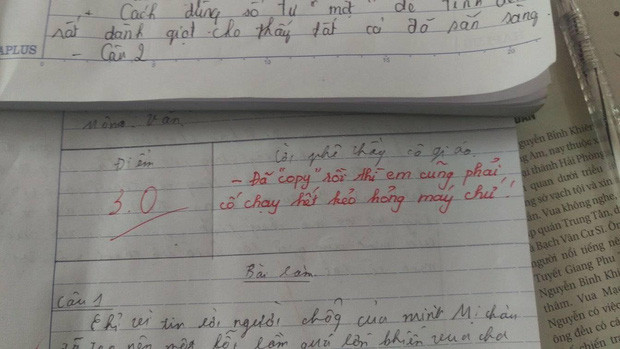 + Cách dùng số từ "một"
rất đanh giọt cho thấy tất cả đã sẵn sàng
APLUS
- Câu 2
0 5 10 15 20
Môn: Văn
Điểm
Lời phê thầy cô giáo
3.0
- Đã "copy" rồi thì em cũng phải
cố chạy hết kẻo hỏng máy chứ!
Bài làm
Câu 1
Chỉ vì tin lời người chồg của mình Mị châu
đã tạo nên một lỗi lầm quá lớn khiến vua cha
guyễn Bỉnh Khiê
Am, nay thuộc x
ại thành Hải Phòng
quan dưới triều
sơ vạch tội và xin
ần. Vua không nghe,
ập quán Trung Tân, d
Bạch Vân Cư Sĩ. Ôn
người nổi tiếng nê
Tuyết Giang Phu
Nguyễn Bỉnh Khiê
thâm. Vua Mạ
Nguyên có việc
ông đều có câ
chiến tr